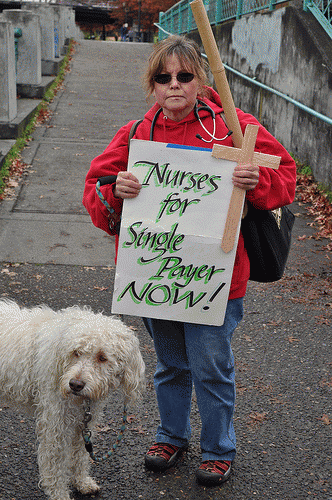 Nurses
for
Single
Payer
NOW!